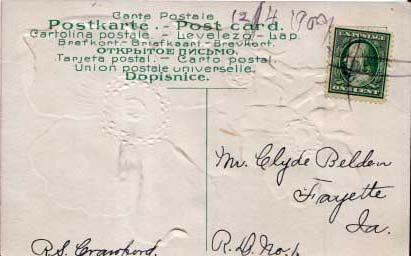 Carte Postale
Postkarte - Post card.
Cartolina postale - Levelezö-Lap
Brefkort-Briefkaart-Brevkort.
ОТКРЫТОЕ ПИСЬМО.
Tarjeta postal. - Carto postal.
Union postale universelle.
Dopisnice.
12/4 1909
U.S. POSTAGE
ONE CENT
Mr. Clyde Belden
Fayette
Ia.
R.D. No. 1
R.S. Crawford.